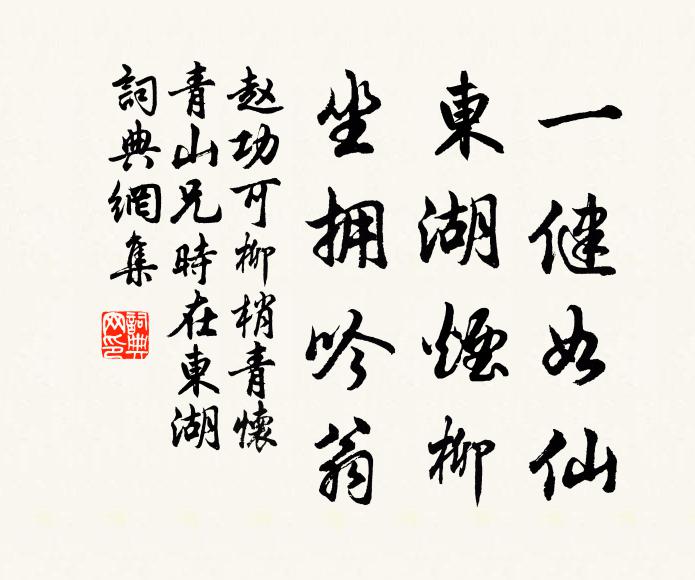 一健如仙
東湖煙柳
坐拥吟翁
赵功可柳梢青懷
青山兄時在東湖
詞典網集
詞典
网印